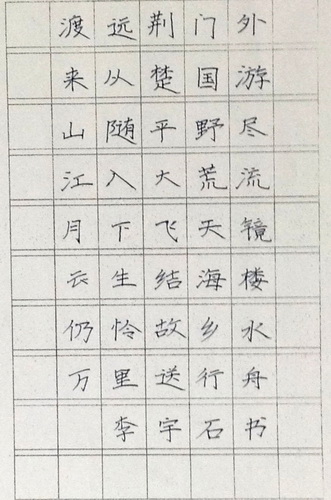 渡远荆门外
来从楚国游
山随平野尽
江入大荒流
月下飞天镜
云生结海楼
仍怜故乡水
万里送行舟
李宇石书